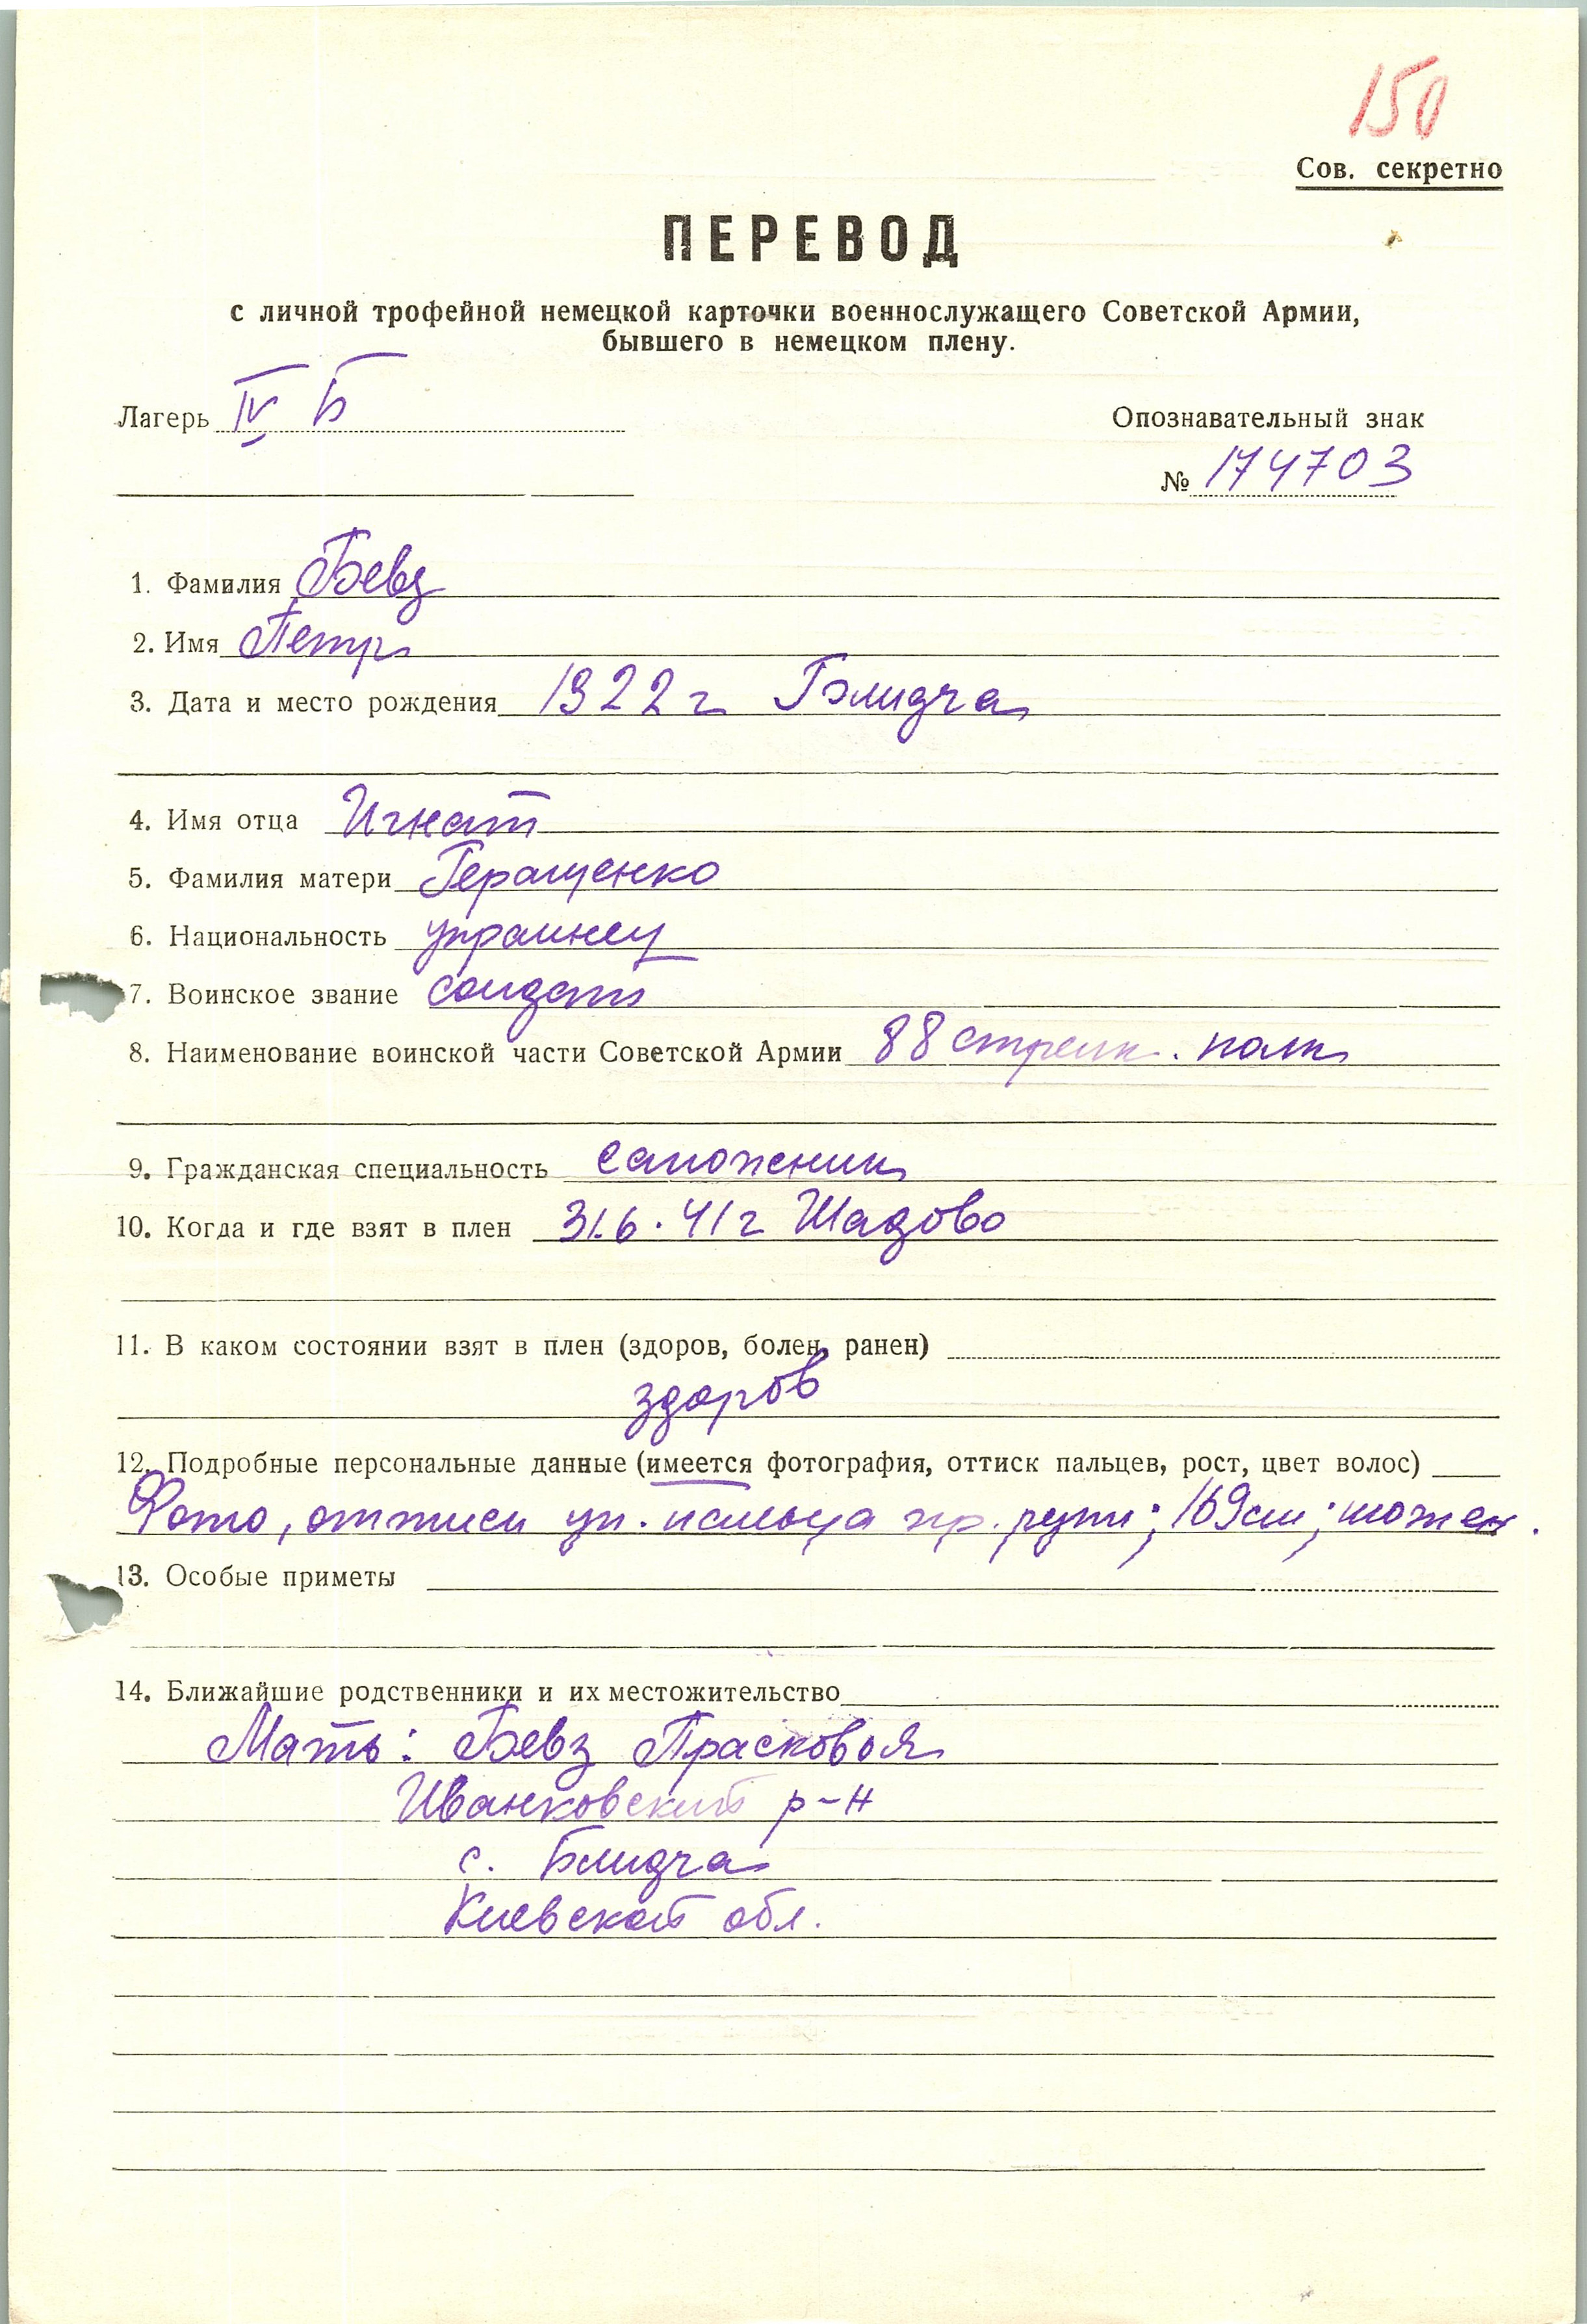 150
Сов. секретно
ПЕРЕВОД
с личной трофейной немецкой карточки военнослужащего Советской Армии,
бывшего в немецком плену.
Лагерь IV Б
Опознавательный знак
№ 174703
1. Фамилия Бевз
2. Имя Петр
3. Дата и место рождения 1922 г Блидча
4. Имя отца Игнат
5. Фамилия матери Геращенко
6. Национальность украинец
7. Воинское звание солдат
8. Наименование воинской части Советской Армии 88 стрелк. полк
9. Гражданская специальность сапожник
10. Когда и где взят в плен 31.6.41 г Шадово
11. В каком состоянии взят в плен (здоров, болен, ранен)
здоров
12. Подробные персональные данные (имеется фотография, оттиск пальцев, рост, цвет волос)
Фото, оттиск ук. пальца пр. руки; 169 см;
13. Особые приметы
14. Ближайшие родственники и их местожительство
Мать: Бевз Прасковья
Иванковский р-н
с. Блидча
Киевской обл.